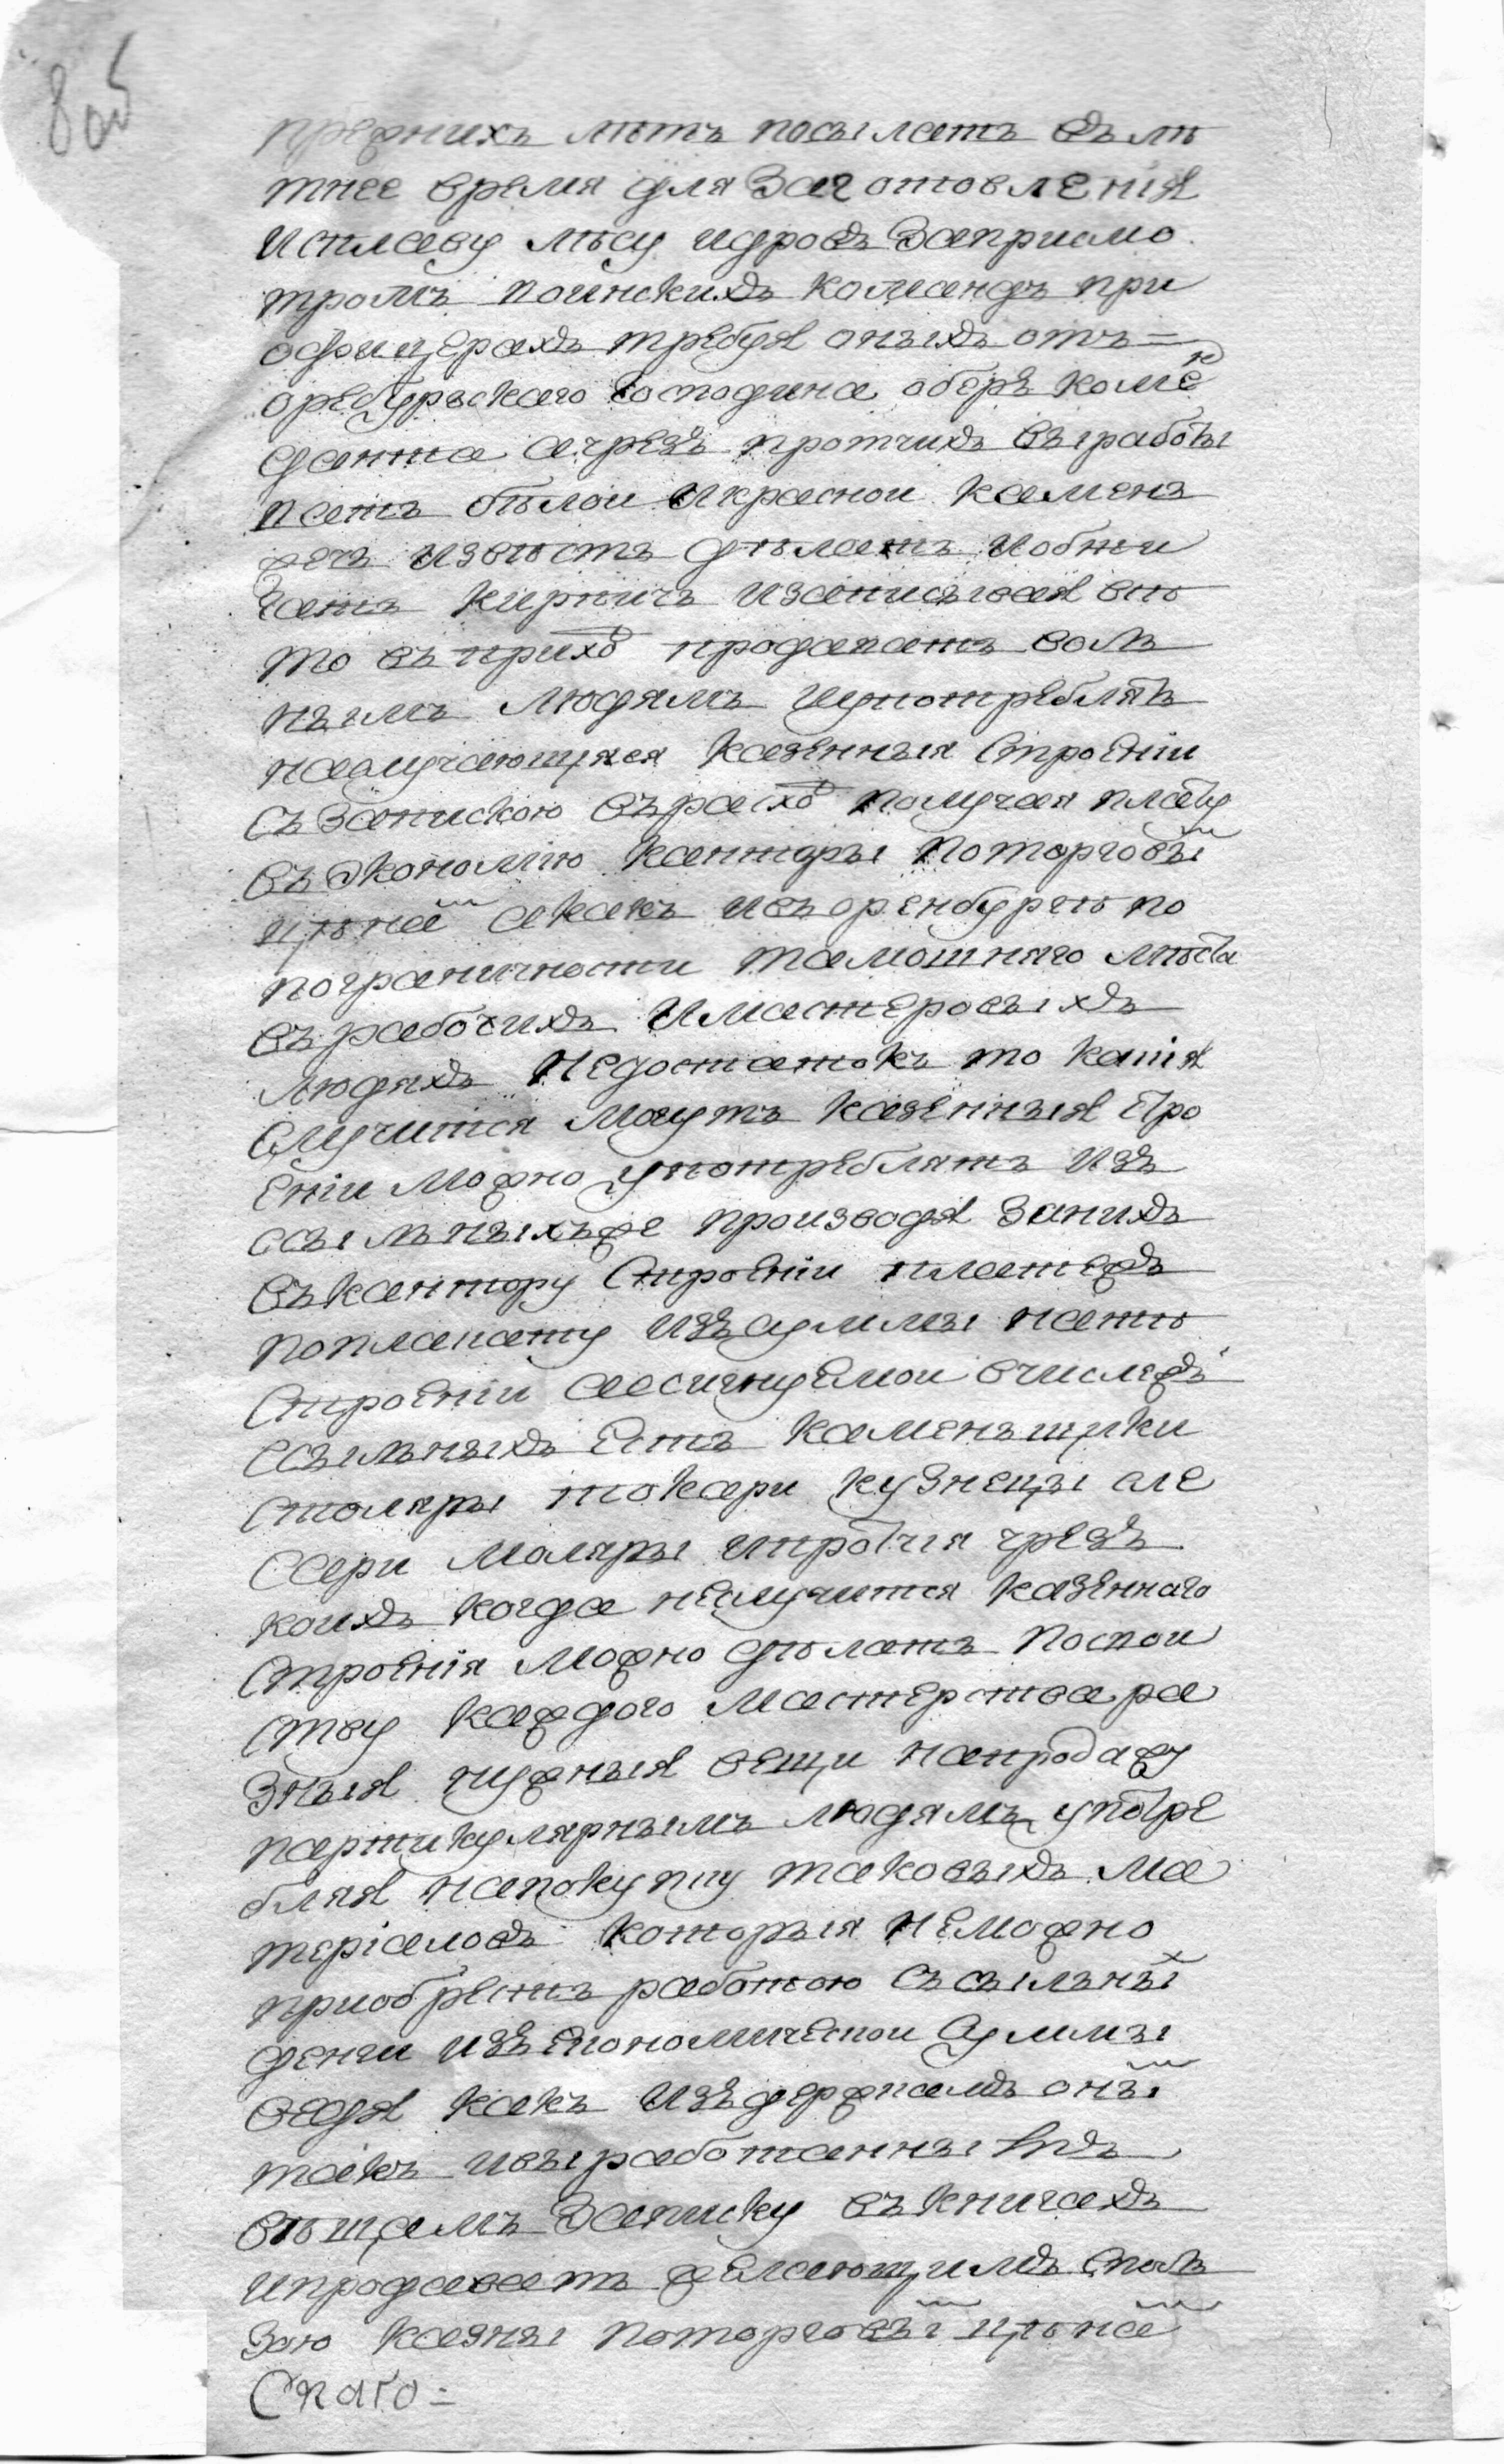 8 об
прежнихъ лѣтъ посылать въ лѣ
тнее время для заготовленія
исплаву лѣсу идровъ заприсмо
тромъ воинскихъ командъ при
офицерахъ требуя оныхъ отъ=
оребурскаго господина оберъ комен
данта ачрезъ протчихъ выработы
вать бѣлои икраснои камень
жечь известь дѣлать иобжи
гать кирпичь изаписывая все
то въприход продавать воль
нымъ людямъ иупотреблять
наслучающияся казенныя строеніи
съзапискою върасход получая плату
въэкономію канторы поторговыи
цѣнаи акакъ ивъоренбургѣ по
пограничности тамошняго мѣста
върабочихъ имастеровыхъ
людяхъ недостатокъ то какія
случится могутъ казенныя стро
еніи можно употреблять изъ
ссыльныхъже производя занихъ
въкантору строеніи платежъ
поплакату изъсуммы наѣ
строеніи ассигнуемои вчислежъ
ссыльныхъ есть каменьщики
столяры токари кузнецы сле
сари маляры ипротчія чрезъ
коихъ когда неслучится казеннаго
строенія можно дѣлать посвои
ству каждого мастерства ра
зныя нужныя вещи напродажу
партикулярнымъ людямъ употре
бляя напокупку таковыхъ ма
теріаловъ которыя неможно
приобрести работою ссыльных
денги изъекономическои суммы
ведя какъ издержкамъ оныи
такъ ивыработаннымъ
вѣщамъ записку въкнигахъ
ипродавать желающимъ споль
зою казны поторговыи цѣнаи
Скаго=